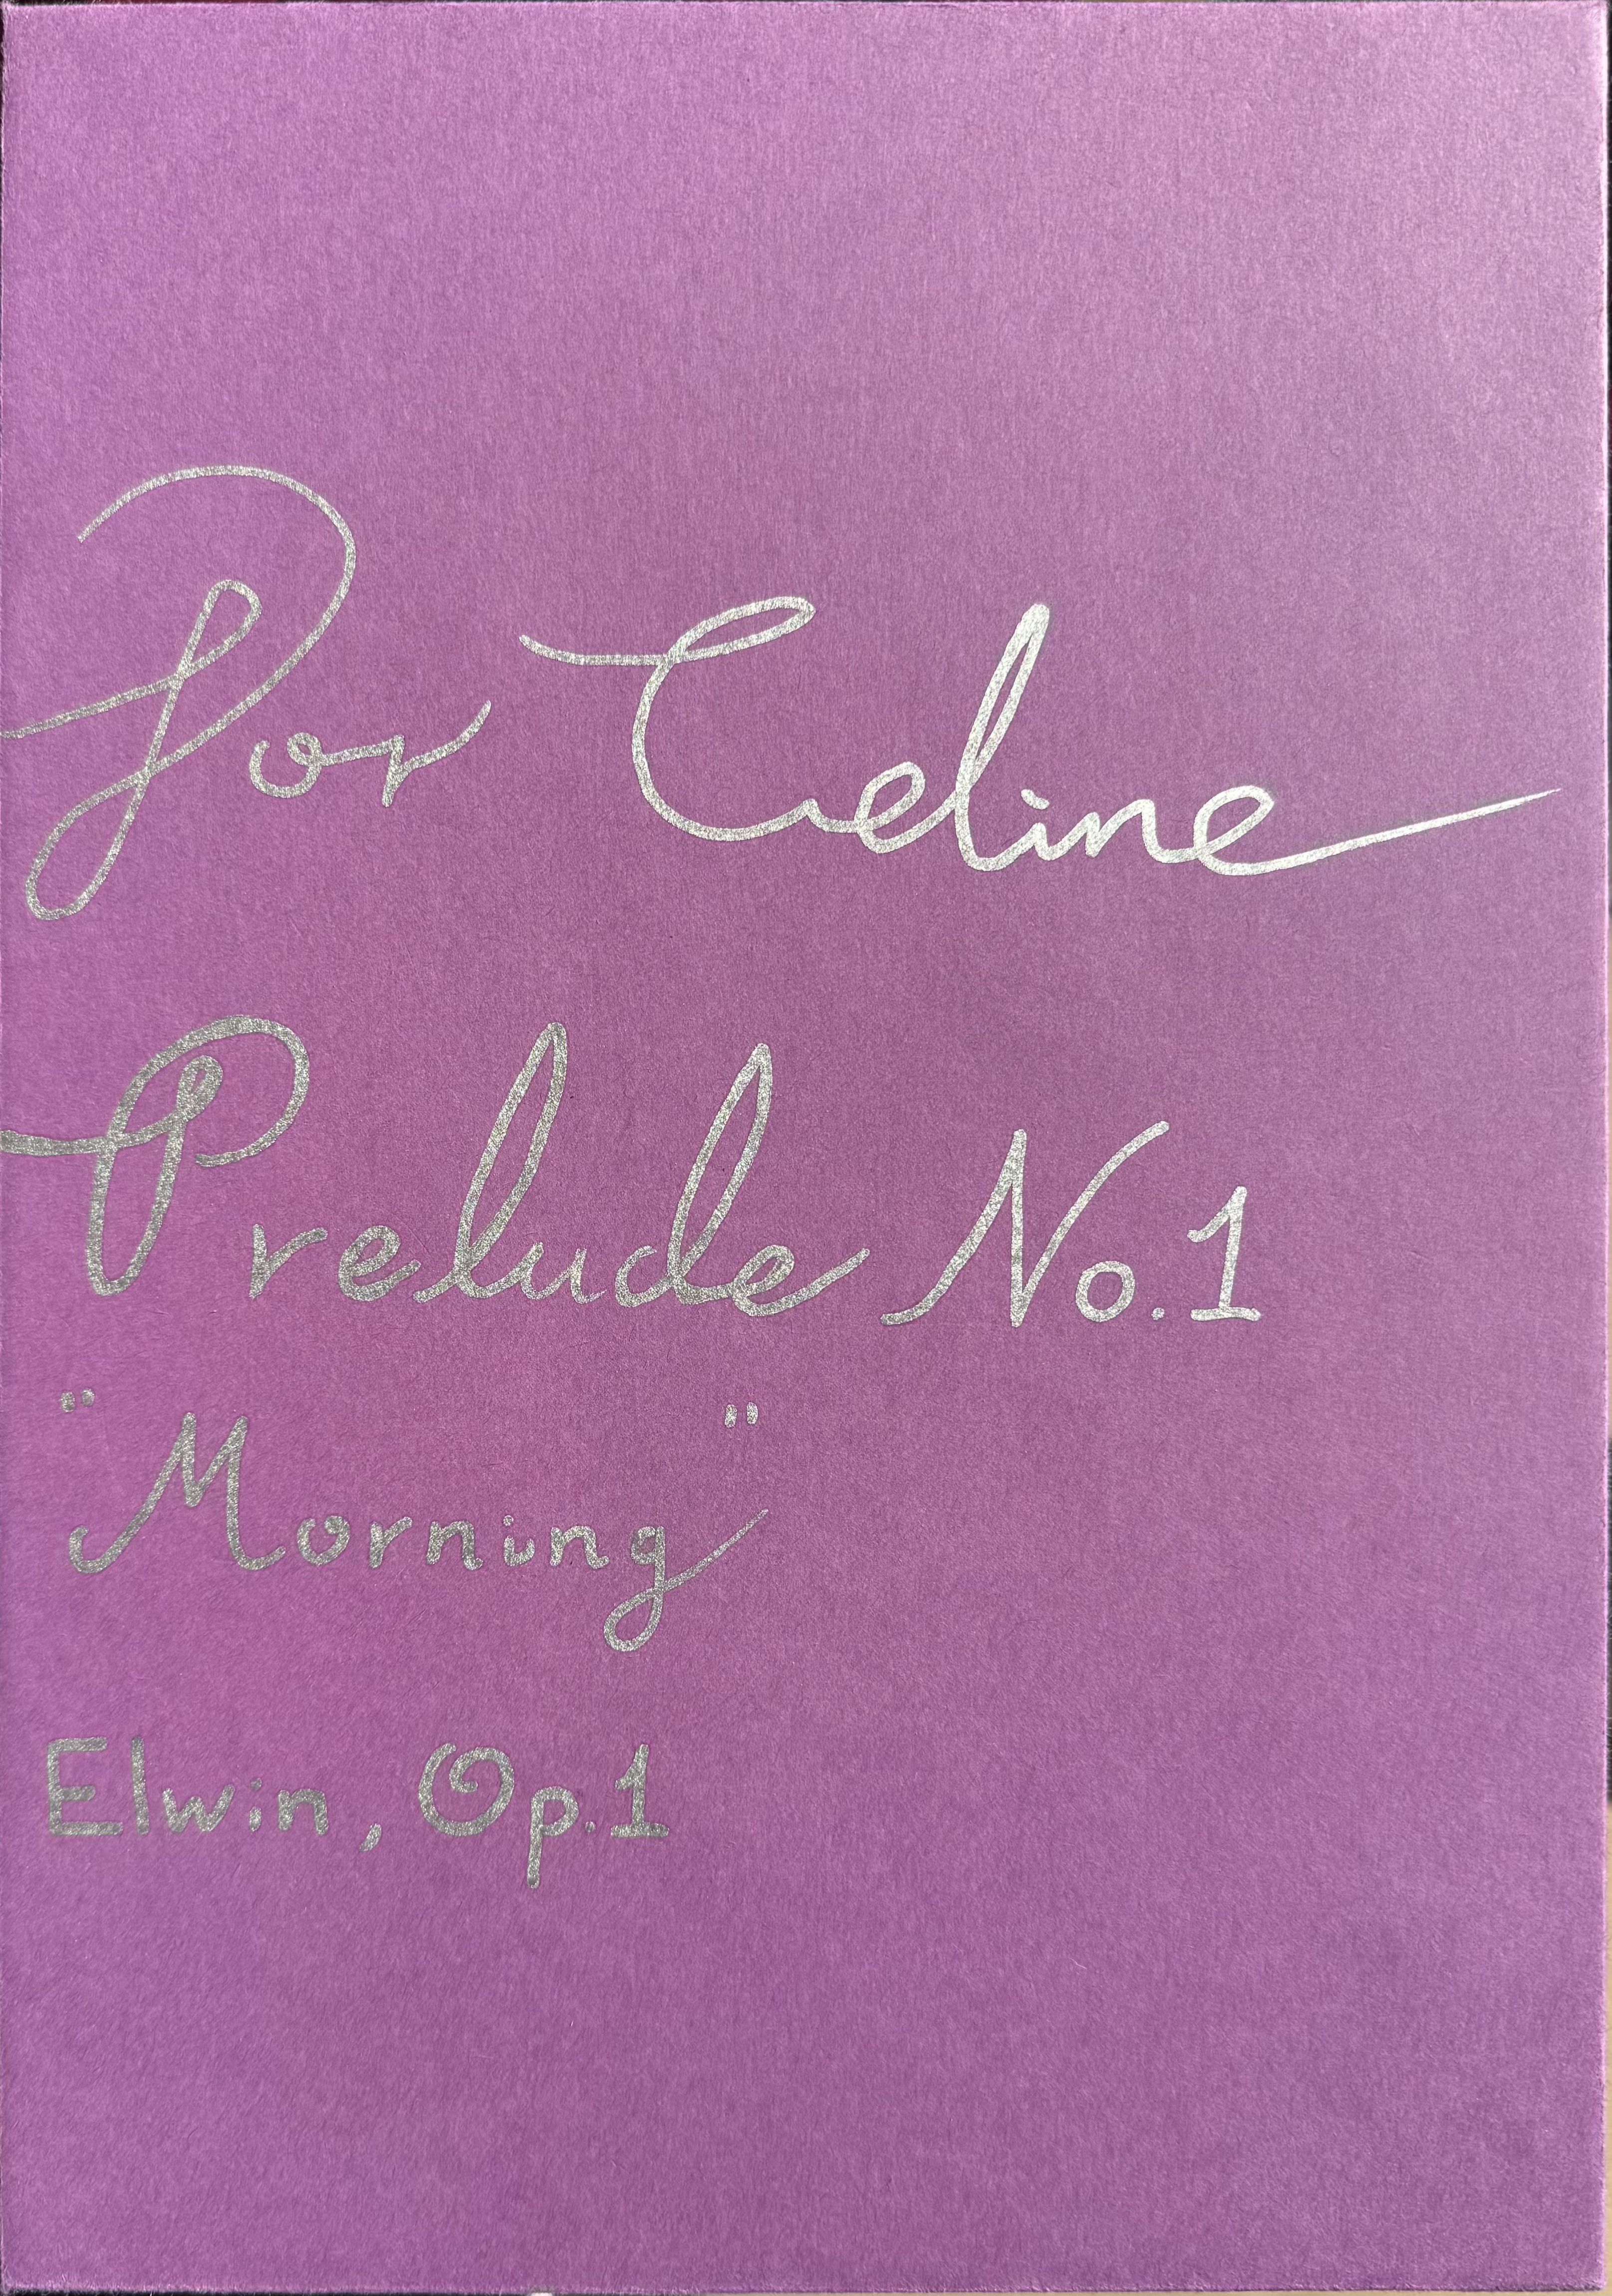 For Celine
Prelude No.1
"Morning"
Elwin, Op.1